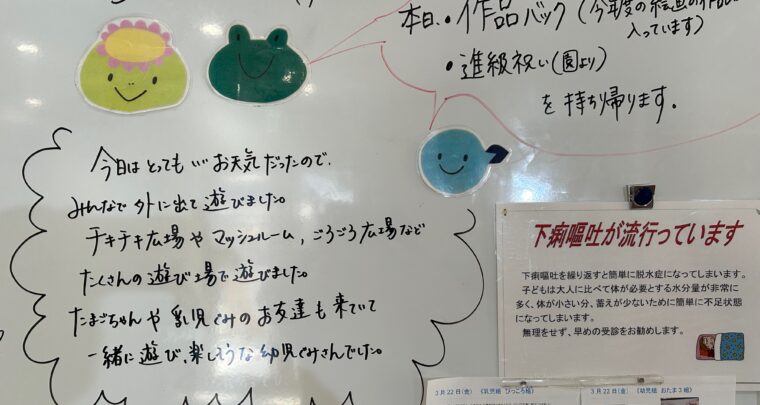 本日・作品バック(今年度の絵画の作品
入っています)
・進級祝い(園より)
を持ち帰ります。
今日はとても…お天気だったので、
みんなで外に出て遊びました。
チキチキ広場やマッシュルーム,ごろごろ広場など
たくさんの遊び場で遊びました。
たまごちゃんや乳児ぐみのお友達も来ていて
一緒に遊び、楽しそうな幼児ぐみさんでした。
下痢嘔吐が流行っています
下痢嘔吐を繰り返すと簡単に脱水症になってしまいます。
子どもは大人に比べて体が必要とする水分量が非常に
多く、体が小さい分、蓄えが少ないために簡単に不足状態
になってしまいます。
無理をせず、早めの受診をお勧めします。
3月22日(金) 《乳児組 ぴっころ組》
3月22日(金) 《幼児組 おたま3組》